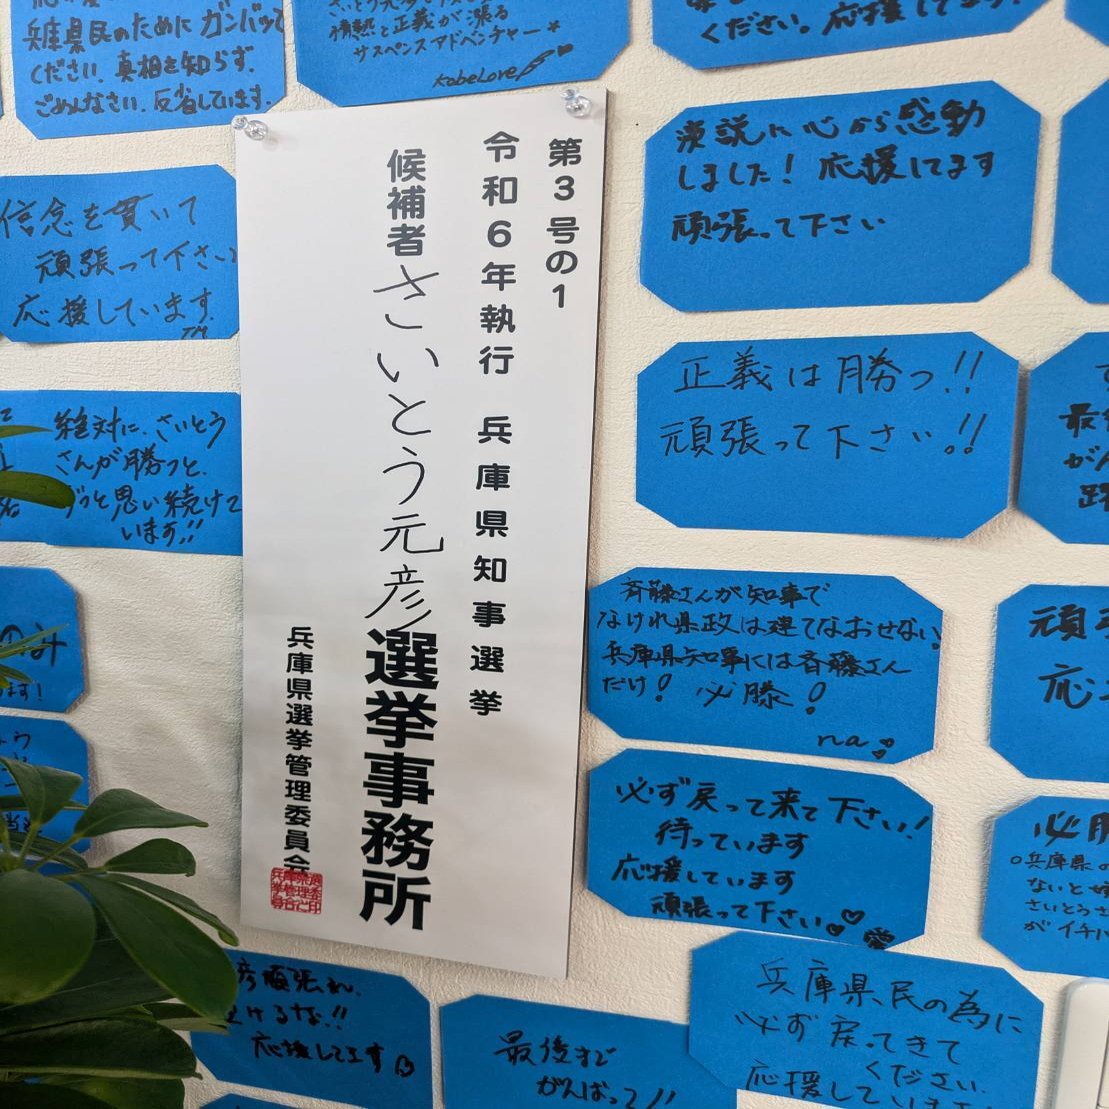 兵庫県民のために ガンバッて
ください. 真相を知らず.
ごめんなさい. 反省しています.
情熱と正義が漲る
サスペンスアドベンチャー
KobeLove
ください。応援してます!
第3号の1
令和6年執行 兵庫県知事選挙
候補者 さいとう元彦 選挙事務所
兵庫県選挙管理委員会
信念を貫いて
頑張って下さい
応援しています.
絶対に、さいとう
さんが勝つと、
ずっと思い続けて
います!!
演説に心から感動
しました! 応援してます
頑張って下さい
正義は勝つ!!
頑張って下さい.!!
斉藤さんが知事で
なければ県政は建てなおせない
兵庫県知事には斉藤さん
だけ! 必勝!
na
必ず戻って来て下さい!
待っています
応援しています
頑張って下さい
頑張れ
まけるな!!
応援してます
最後まで
がんばって!!
兵庫県民の為に
必ず戻ってきて
ください.
応援しています
最
が
頑
応
必勝
兵庫県の
ないと
さいとうさ
が イチ
のみ
ます!